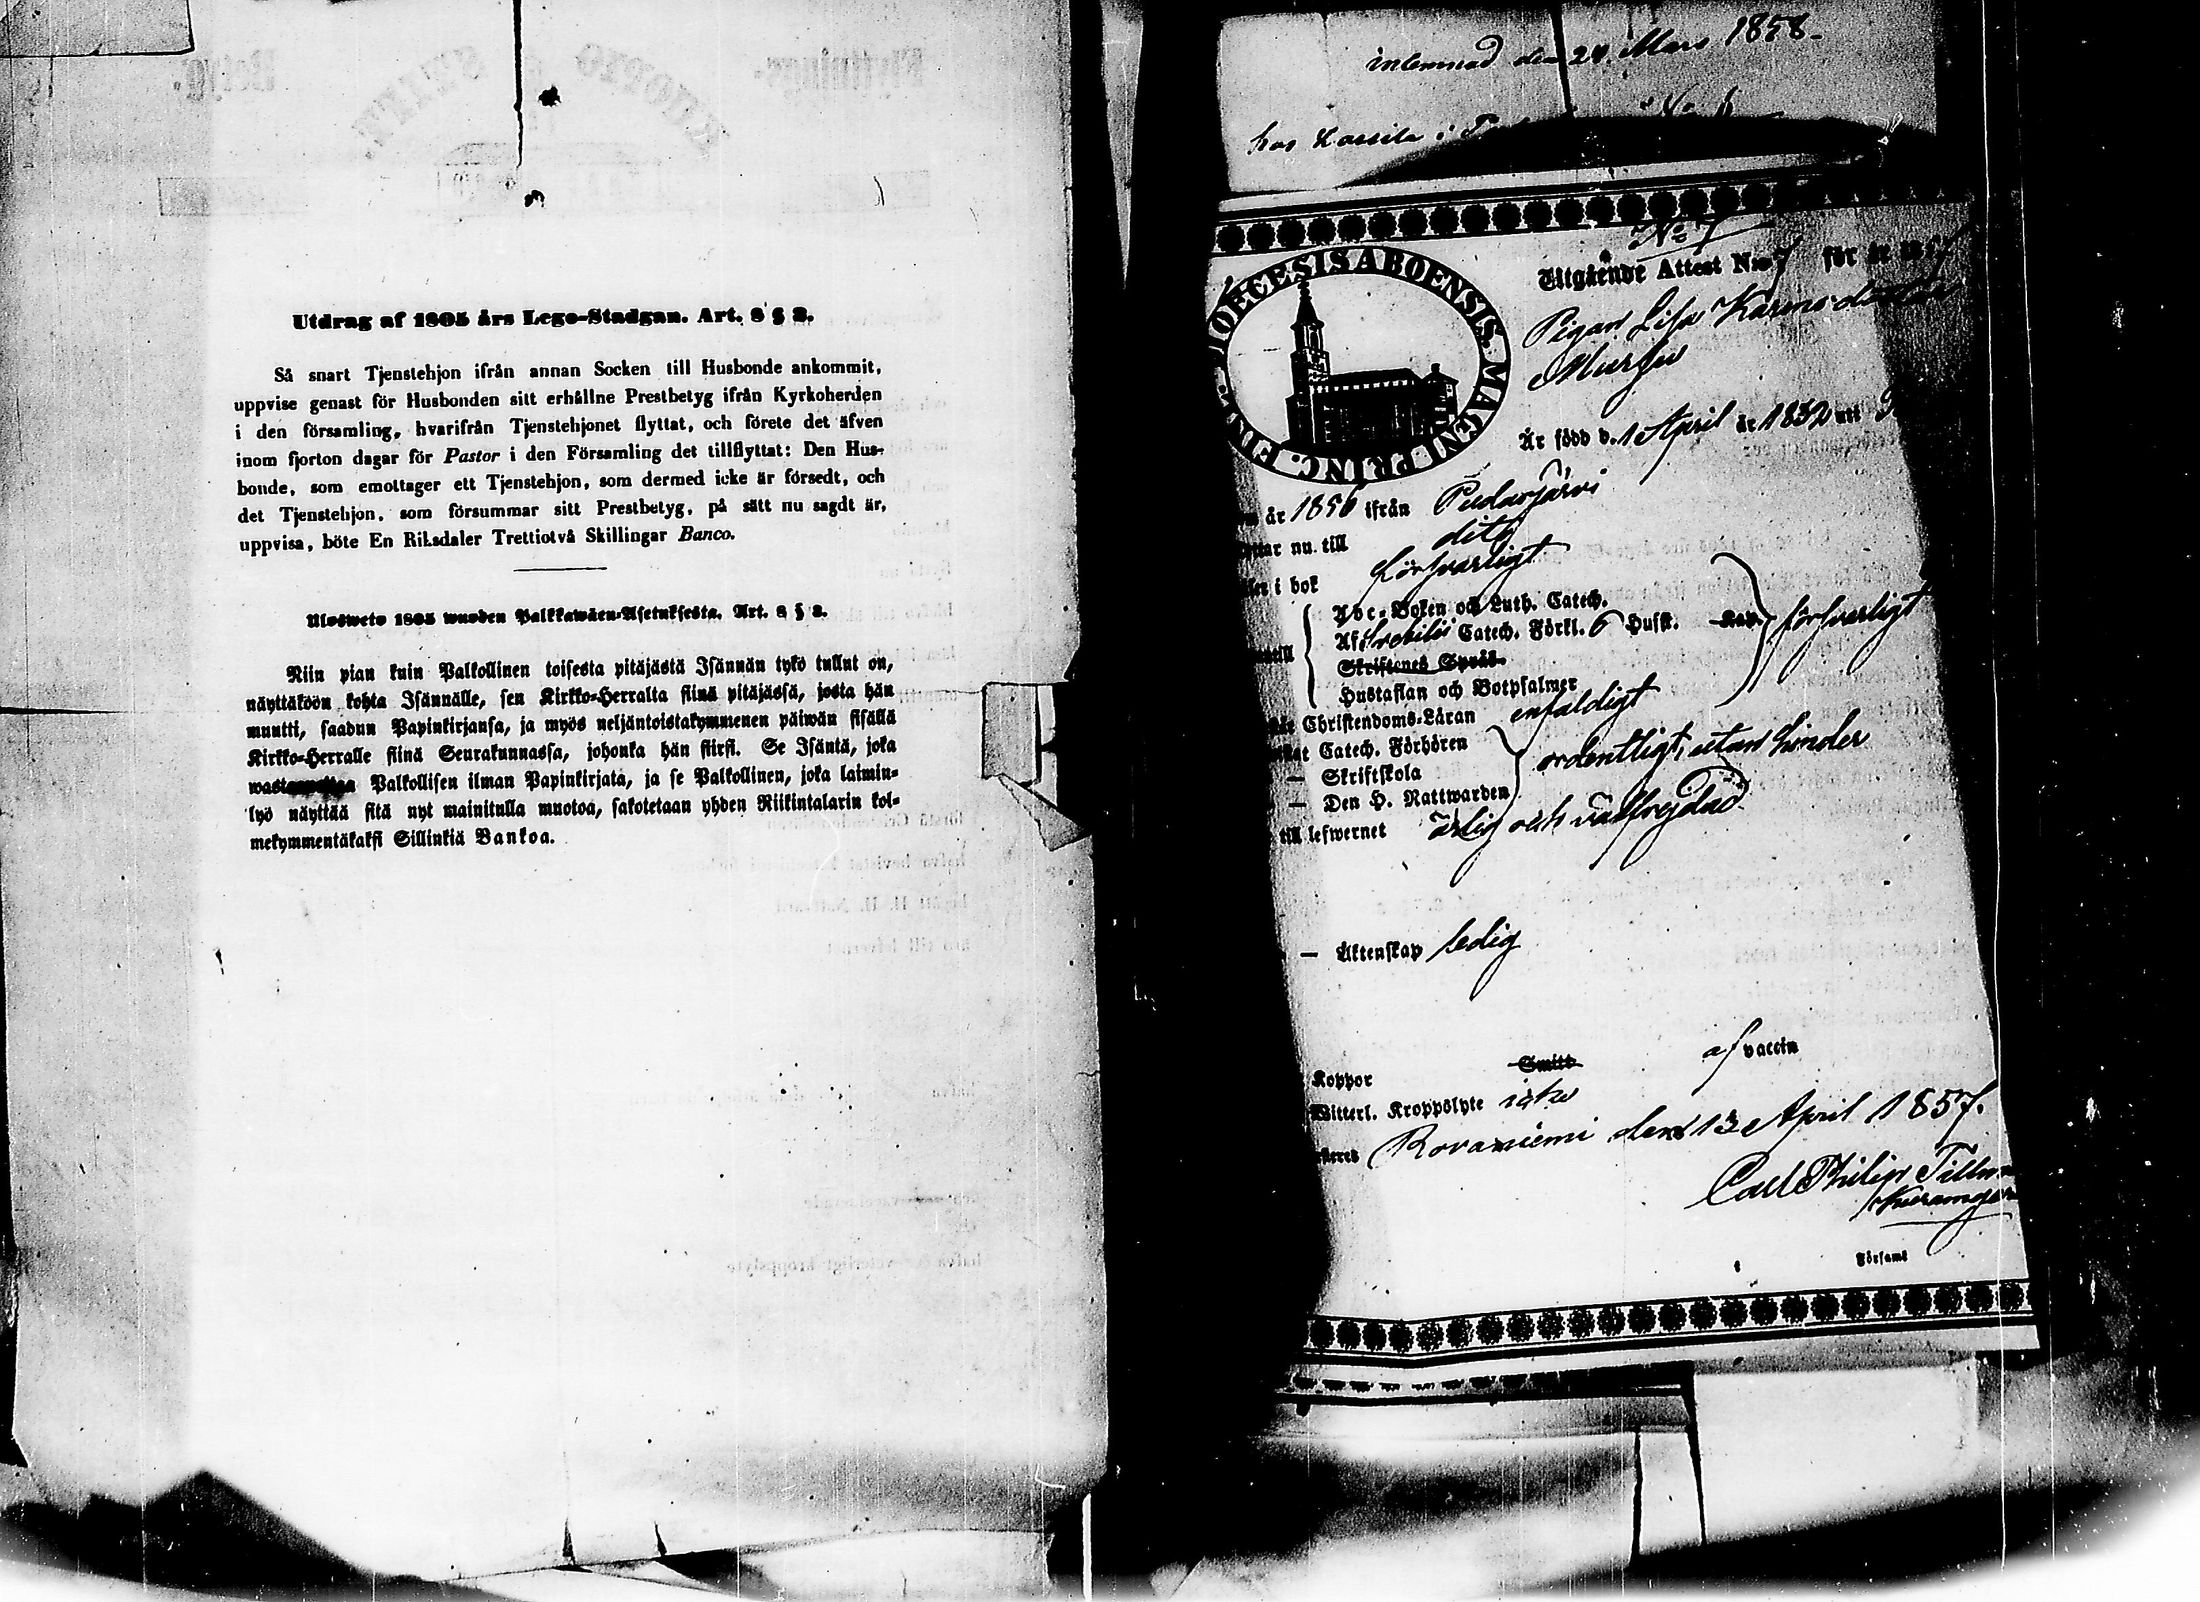 Utdrag af 1805 års Lego-Stadgan. Art. 8 § 2.
Så snart Tjenstehjon ifrån annan Socken till Husbonde ankommit,
uppvise genast för Husbonden sitt erhållne Prestbetyg ifrån Kyrkoherden
i den församling, hvarifrån Tjenstehjonet flyttat, och förete det äfven
inom fjorton dagar för Pastor i den Församling det tillflyttat: Den Hus-
bonde, som emottager ett Tjenstehjon, som dermed icke är försedt, och
det Tjenstehjon, som försummar sitt Prestbetyg, på sätt nu sagdt är,
uppvisa, böte En Riksdaler Trettiotvå Skillingar Banco.
Ulosweto 1805 wuoden Palkkawäen-Asetuksesta. Art. 8 § 2.
Niin pian kuin Palkollinen toisesta pitäjästä Isännän tykö tullut on,
näyttäköön kohta Isännälle, sen Kirkko-Herralta siinä pitäjässä, josta hän
muutti, saadun Papinkirjansa, ja myös neljäntoistakymmenen päiwän sisällä
Kirkko-Herralle siinä Seurakunnassa, johonka hän siirsi. Se Isäntä, joka
Palkollisen ilman Papinkirjata, ja se Palkollinen, joka laimin-
lyö näyttää sitä nyt mainitulla muotoa, sakotetaan yhden Riikintalarin kol-
mekymmentäkaksi Sillinkiä Bankoa.
inlemnad den 24 Mars 1858.
hos Lassila i
No 7
DIOECESIS ABOENSIS MAGNI PRINC. FIN
Utgående Attest N:o 7 för år 1857
Pigan Lisa Karins dotter
Murso
Är född d. 1 April år 1832 att
år 1856 ifrån Pudasjärvi
nu till dito
i bok försvarligt
Abc-Boken och Luth. Catech.
Af Svebilii Catech. Förkl. 6 Hufst. Kap. försvarligt
Skriftenes Språk.
Hustaflan och Botpsalmer
Christendoms-Läran enfaldigt
Catech. Förhören
— Skriftskola ordentligt, utan hinder
— Den H. Nattwarden
till lefwernet ärlig och välfrejdad
— Äktenskap ledig
Koppor Smitt af vaccin
Witterl. Kroppslyte icke
Rovaniemi den 13 April 1857.
Carl Philip
Församl